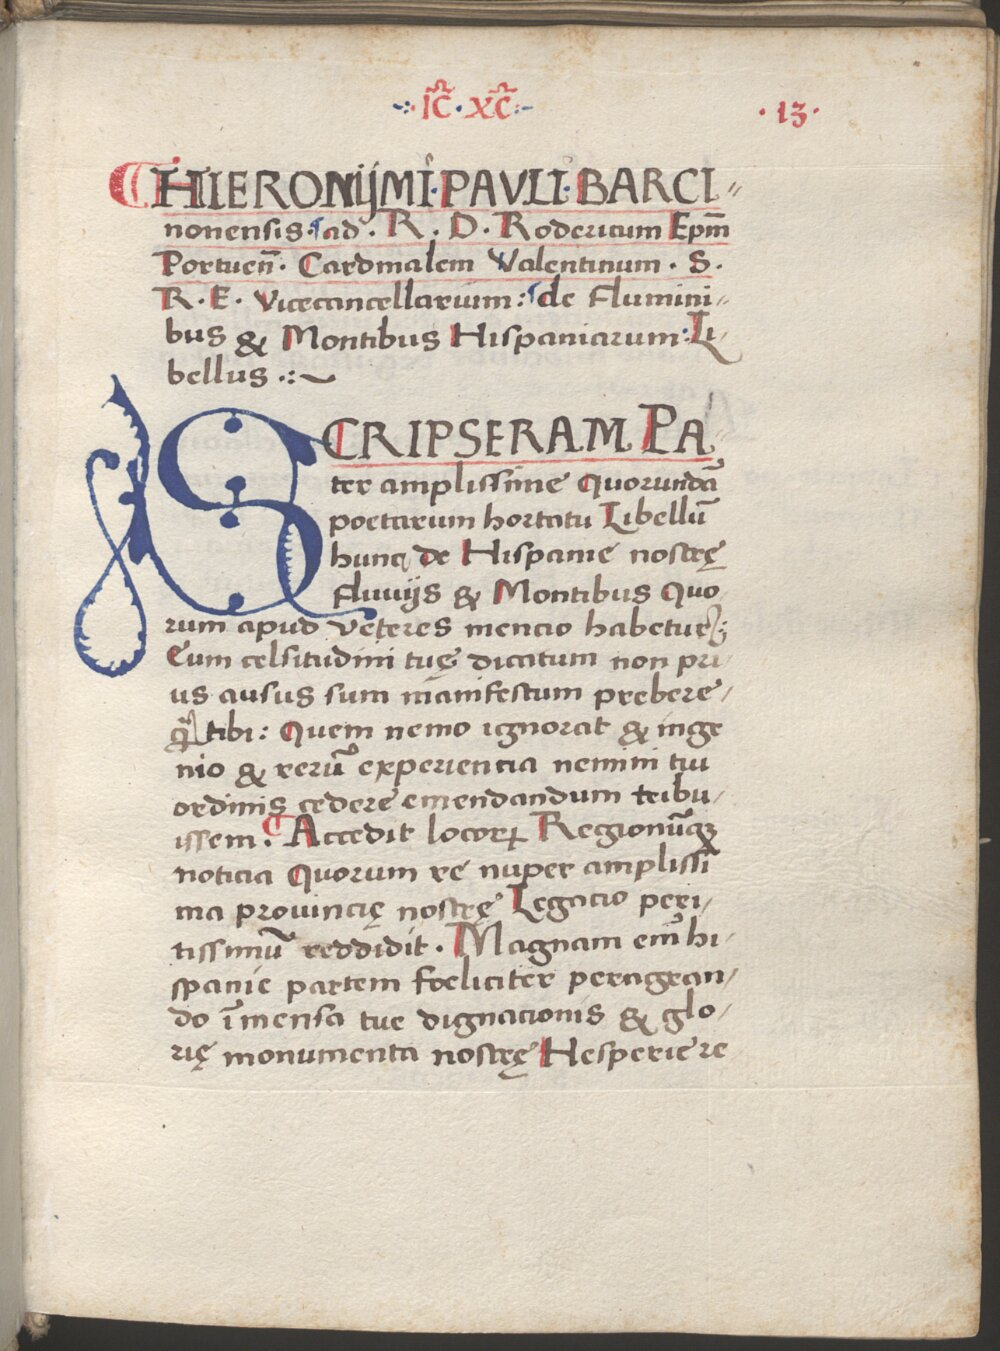 ·:· IC̃ · XC̃ ·:·
· 13 ·
HIERONIJMI · PAVLI · BARCI⸗
nonensis · ad . R . D . Rodericum Epm̃
Portueñ · Cardinalem Valentinum · S .
R · E · Vicecancellarium : de flumini⸗
bus & Montibus Hispaniarum : Li
bellus .:~
SCRIPSERAM PA
ter amplissime Quorundã
poetarum hortatu Libellũ
hunc de Hispanie nostrę
fluvijs & Montibus Quo
rum apud veteres mencio habetur ;
Cum celsitudini tuę dicatum non pri⸗
us ausus sum manifestum prebere⸗
tibi : Quem nemo ignorat & inge
nio & rerũ experientia nemini tui
ordinis cedere emendandum tribu⸗
issem . Accedit locoꝝ Regionũqꝫ
noticia Quorum re nuper amplissi
ma provincię nostrę Legacio peri⸗
tissimũ reddidit . Magnam em̃ hi⸗
spanie partem foeliciter peragran⸗
do ĩmensa tue dignacionis & glo⸗
rię monumenta nostrę Hesperie re